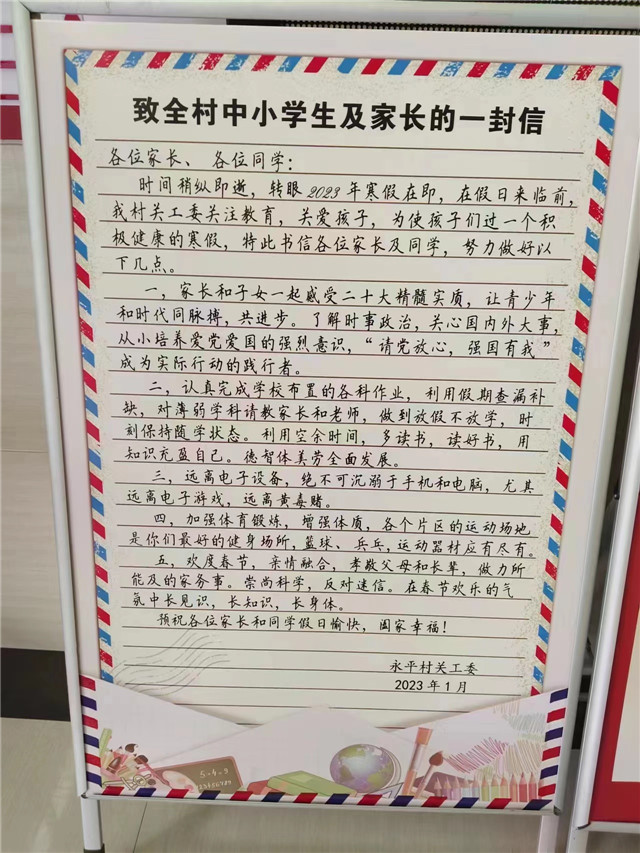 致全村中小学生及家长的一封信
各位家长、各位同学：
时间稍纵即逝，转眼2023年寒假在即，在假日来临前，
我村关工委关注教育，关爱孩子，为使孩子们过一个积
极健康的寒假，特此书信各位家长及同学，努力做好以
下几点。
一，家长和子女一起感受二十大精髓实质，让青少年
和时代同脉搏，共进步。了解时事政治，关心国内外大事，
从小培养爱党爱国的强烈意识，“请党放心，强国有我”
成为实际行动的践行者。
二，认真完成学校布置的各科作业，利用假期查漏补
缺，对薄弱学科请教家长和老师，做到放假不放学，时
刻保持随学状态。利用空余时间，多读书，读好书，用
知识充盈自己。德智体美劳全面发展。
三，远离电子设备，绝不可沉溺于手机和电脑，尤其
远离电子游戏，远离黄毒赌。
四，加强体育锻炼，增强体质，各个片区的运动场地
是你们最好的健身场所，篮球、乒乓，运动器材应有尽有。
五，欢度春节，亲情融合，孝敬父母和长辈，做力所
能及的家务事。崇尚科学，反对迷信。在春节欢乐的气
氛中长见识，长知识，长身体。
预祝各位家长和同学假日愉快，阖家幸福！
永平村关工委
2023年1月
5-4-9
123456789